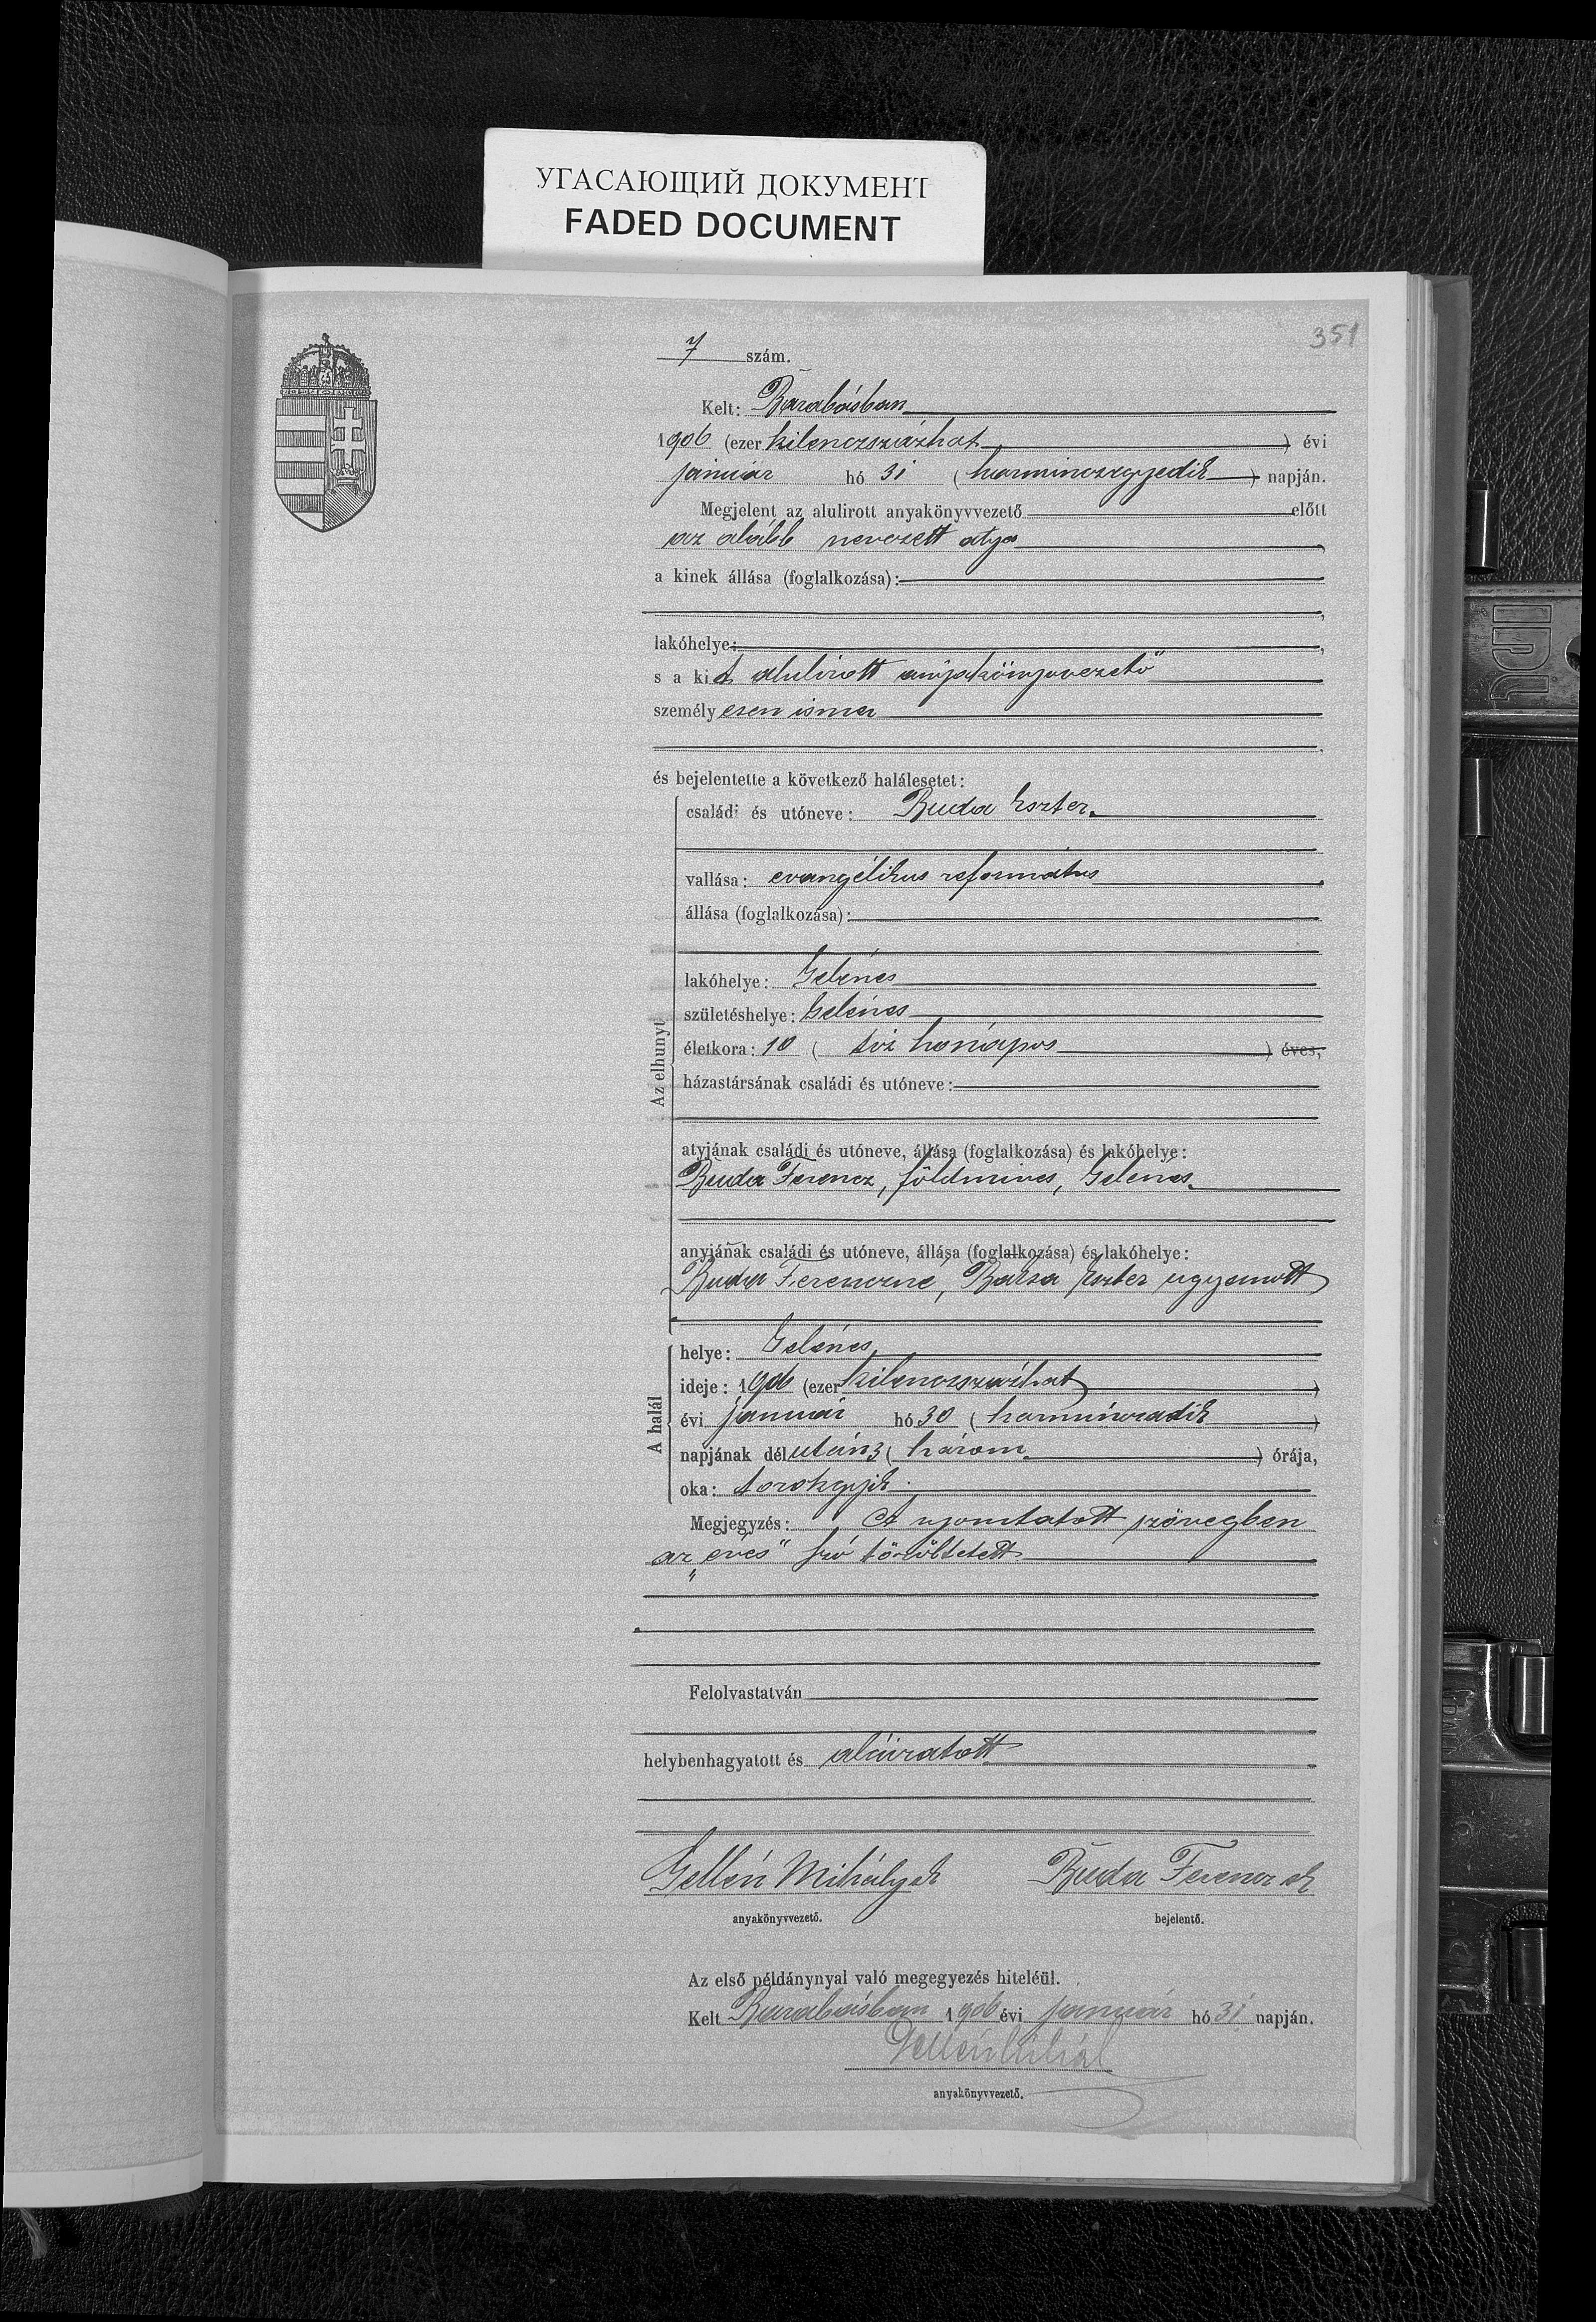 УГАСАЮЩИЙ ДОКУМЕНТ
FADED DOCUMENT
351
7 szám.
Kelt: Barabásban
1906 (ezer kilenczszázhat) évi
január hó 31 (harminczegyedik) napján.
Megjelent az alulirott anyakönyvvezető előtt
az alább nevezett atya,
a kinek állása (foglalkozása):
lakóhelye:
s a kit alulirott anyakönyvvezető
személyesen ismer
és bejelentette a következő halálesetet:
Az elhunyt
családi és utóneve: Buda Eszter.
vallása: evangélikus református
állása (foglalkozása):
lakóhelye: Gelénes
születéshelye: Gelénes
életkora: 10 (tíz hónapos) éves,
házastársának családi és utóneve:
atyjának családi és utóneve, állása (foglalkozása) és lakóhelye:
Buda Ferencz, földmives, Gelénes.
anyjának családi és utóneve, állása (foglalkozása) és lakóhelye:
Buda Ferenczné, Eszter ugyanott
A halál
helye: Gelénes
ideje: 1906 (ezer kilenczszázhat)
évi január hó 30 (harminczadik)
napjának délután 3 (három) órája,
oka: torokgyík.
Megjegyzés: A nyomtatott szövegben
az „éves" szó töröltetett.
Felolvastatván
helybenhagyatott és aláiratott
Gellén Mihály sk Buda Ferencz sk
anyakönyvvezető. bejelentő.
Az első példánynyal való megegyezés hiteléül.
Kelt Barabásban 1906 évi január hó 31 napján.
Gellén Mihály
anyakönyvvezető.